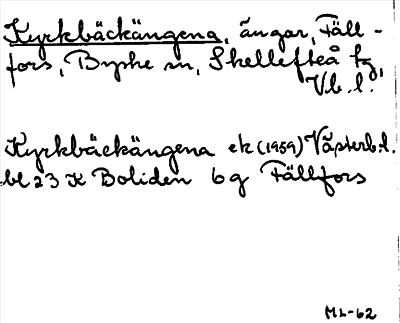 Kyrkbäckängena, ängar, Fäll-
fors, Byske sn, Skellefteå tg,
Vb. l.
Kyrkbäckängena ek (1959) Västerb. l.
bl 23 K Boliden 6 g Fällfors
ML-62